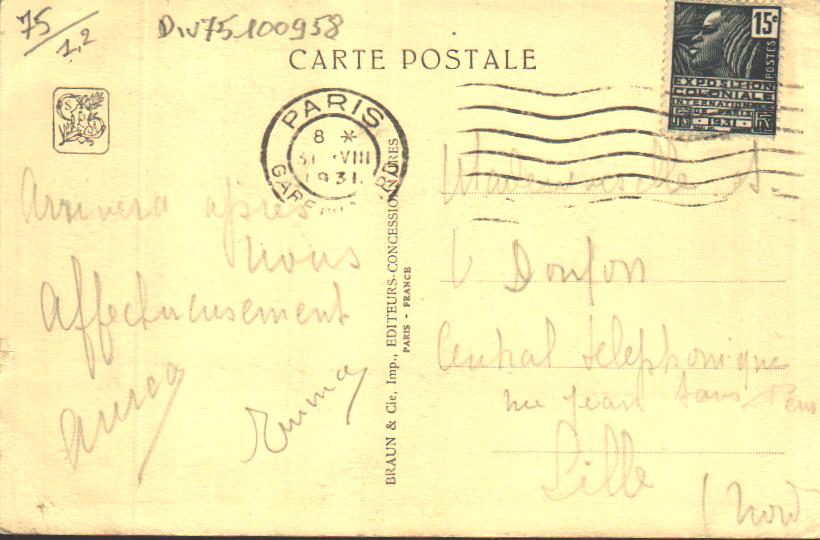 75
1,2
Div75.100958
CARTE POSTALE
15c
POSTES
EXPOSITION
COLONIALE
INTERNATIONALE
PARIS
8 *
31 VIII
1931
GARE
BRAUN & Cie, Imp., EDITEURS-CONCESSIONNAIRES
PARIS - FRANCE
Arrivera après
nous
Affectueusement
Emma
Mademoiselle
Central telephonique
rue Jean sans Peur
Lille
(Nord